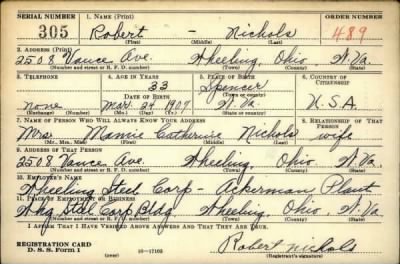 SERIAL NUMBER 1. NAME (Print) ORDER NUMBER
305 Robert - Nichols 489
(First) (Middle) (Last)
2. ADDRESS (Print)
2508 Vance Ave. Wheeling, Ohio W.Va.
(Number and street or R. F. D. number) (Town) (County) (State)
3. TELEPHONE 4. AGE IN YEARS 5. PLACE OF BIRTH 6. COUNTRY OF CITIZENSHIP
33 Spencer
DATE OF BIRTH (Town or county)
none Mar. 24 1907 W.Va. U.S.A.
(Exchange) (Number) (Mo.) (Day) (Yr.) (State or country)
7. NAME OF PERSON WHO WILL ALWAYS KNOW YOUR ADDRESS 8. RELATIONSHIP OF THAT PERSON
Mrs Mamie Catherine Nichols wife
(Mr., Mrs., Miss) (First) (Middle) (Last)
9. ADDRESS OF THAT PERSON
2508 Vance Ave. Wheeling, Ohio W.Va.
(Number and street or R. F. D. number) (Town) (County) (State)
10. EMPLOYER'S NAME
Wheeling Steel Corp - Ackerman Plant
11. PLACE OF EMPLOYMENT OR BUSINESS
Whg Steel Corp Bldg Wheeling, Ohio, W.Va.
(Number and street or R. F. D. number) (Town) (County) (State)
I AFFIRM THAT I HAVE VERIFIED ABOVE ANSWERS AND THAT THEY ARE TRUE.
REGISTRATION CARD Robert Nichols
D. S. S. Form 1 (over) 16-17105 (Registrant's signature)